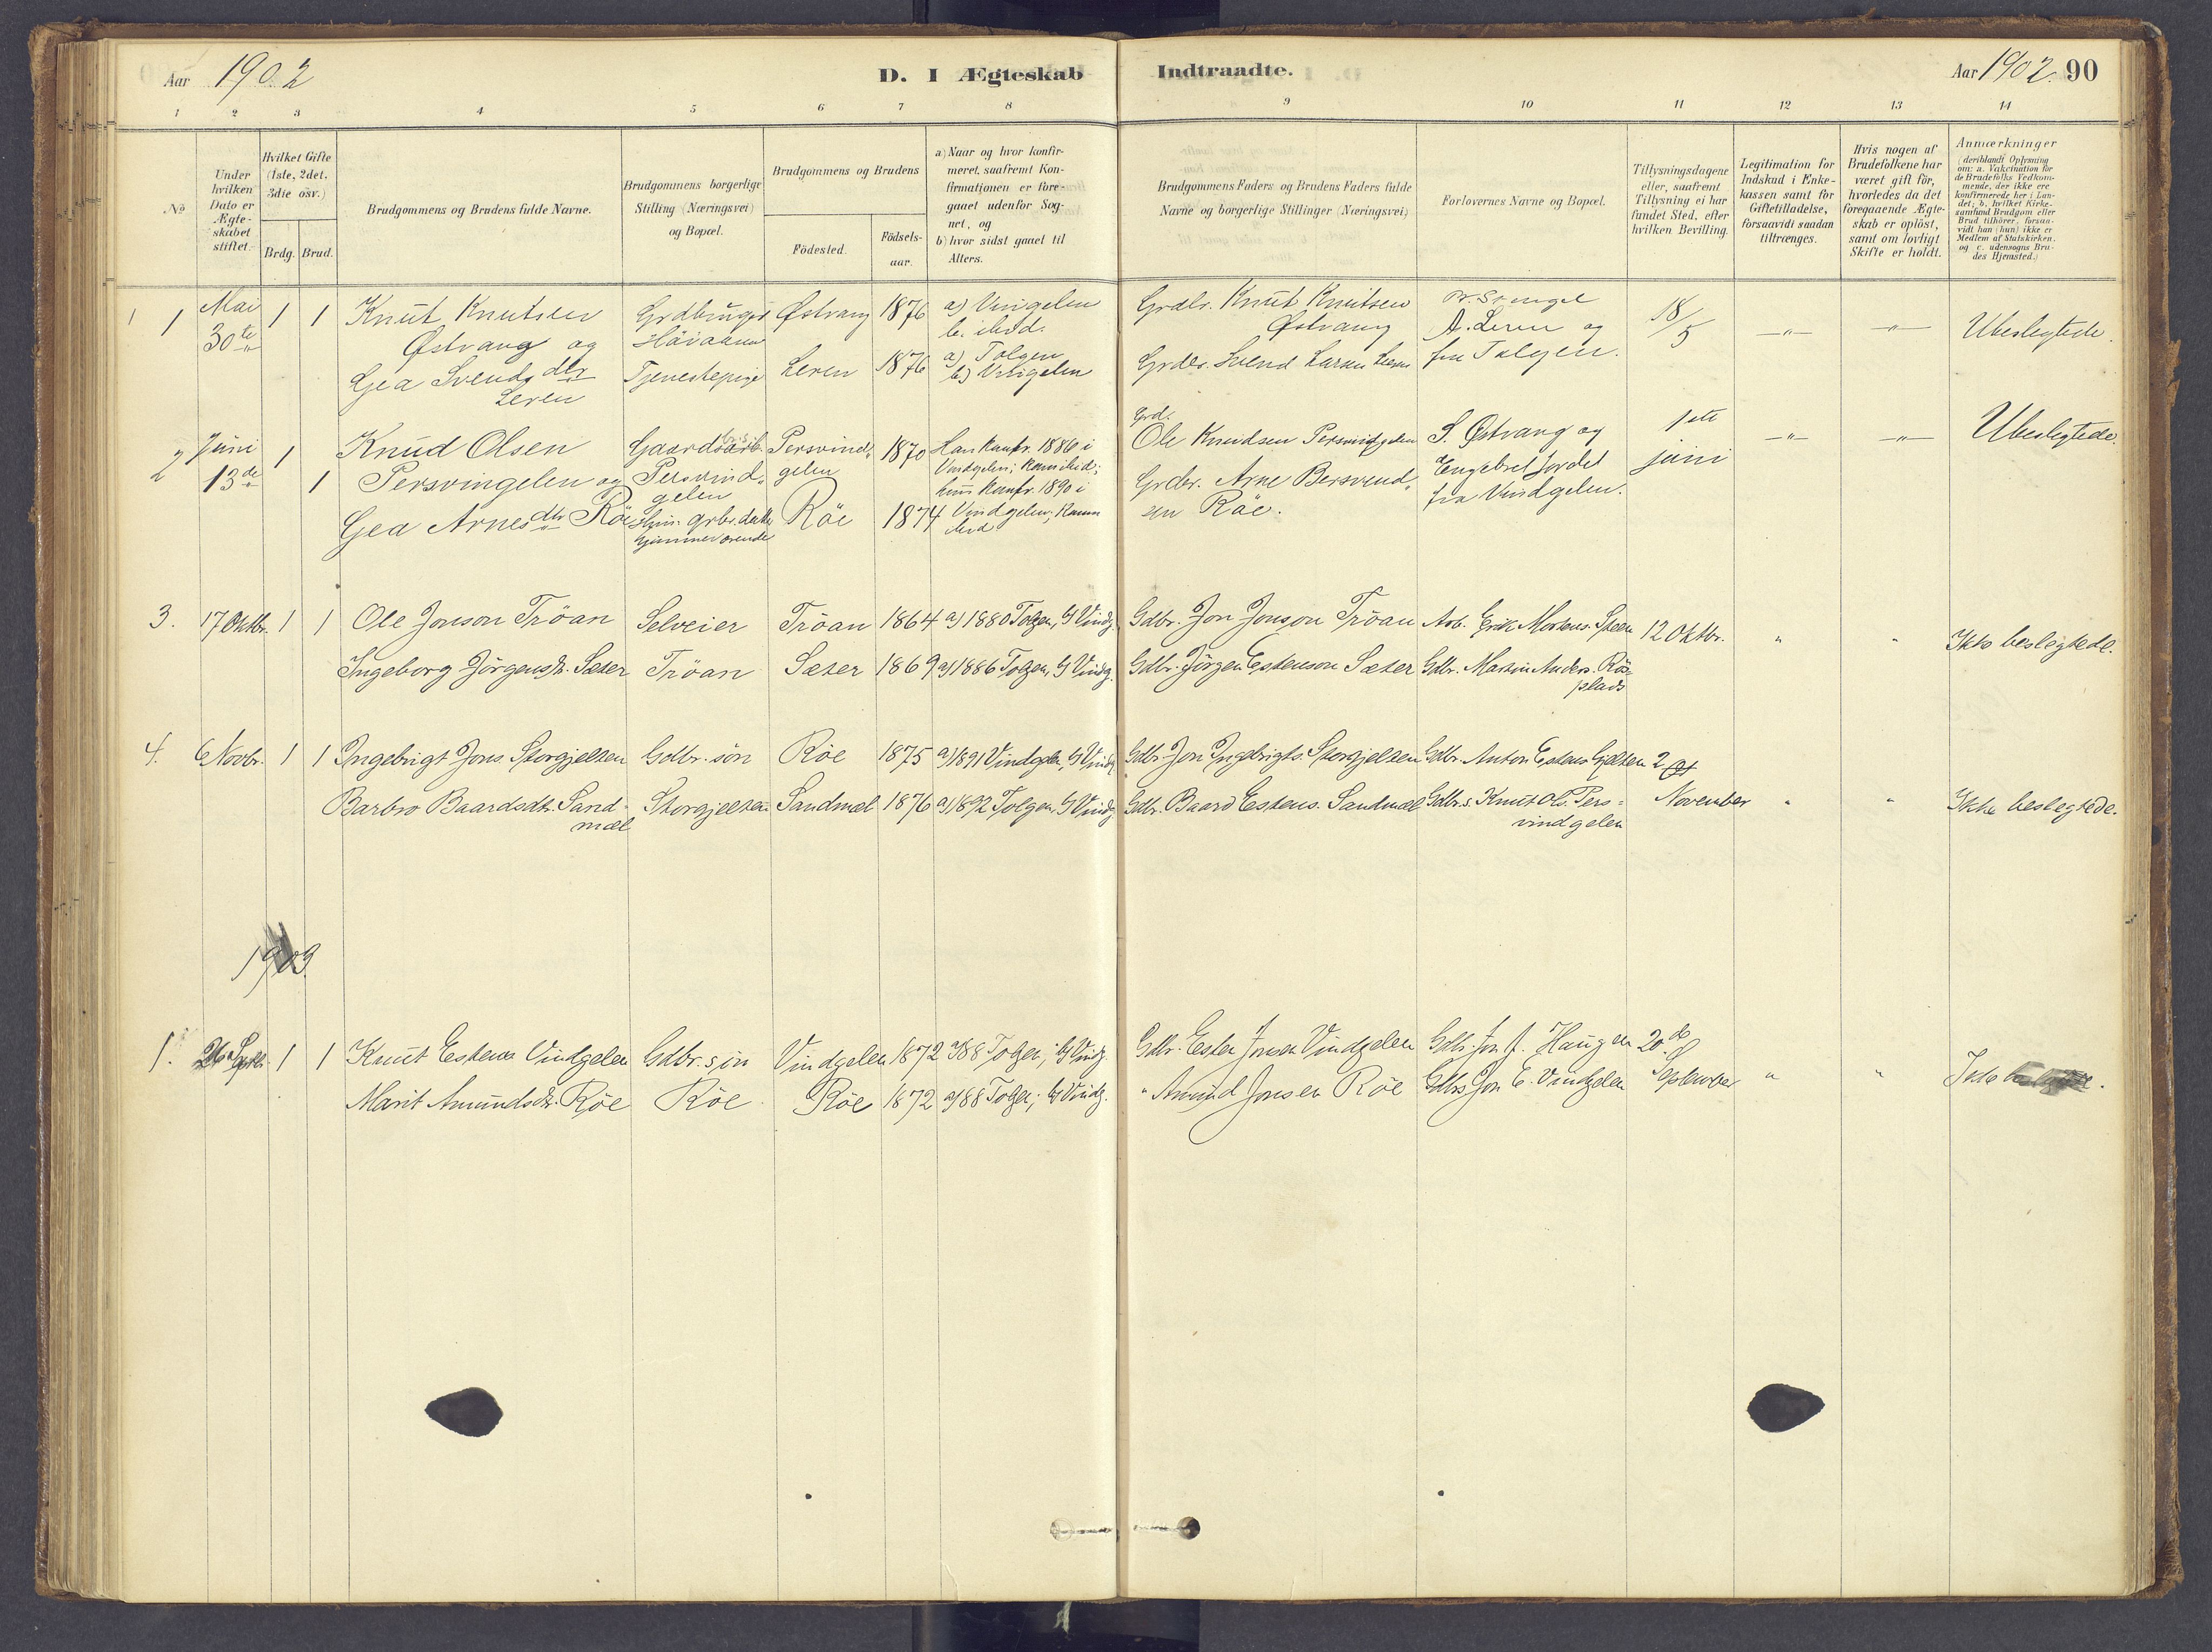 Aar 1902
D. I Ægteskab Indtraadte.
Aar 1902. 90
1 2 3 4 5 6 7 8 9 10 11 12 13 14
No
Under hvilken Dato er Ægteskabet stiftet.
Hvilket Gifte (1ste, 2det, 3die osv.)
Brdg. Brud.
Brudgommens og Brudens fulde Navne.
Brudgommens borgerlige Stilling (Næringsvei) og Bopæl.
Brudgommens og Brudens
Födested. Födsels-aar.
a) Naar og hvor konfirmeret, saafremt Konfirmationen er foregaaet udenfor Sognet, og
b) hvor sidst gaaet til Alters.
Brudgommens Faders og Brudens Faders fulde Navne og borgerlige Stillinger (Næringsvei)
Forlovernes Navne og Bopæl.
Tillysningsdagene eller, saafremt Tillysning ei har fundet Sted, efter hvilken Bevilling.
Legitimation for Indskud i Enkekassen samt for Giftetilladelse, forsaavidt saadan tiltrænges.
Hvis nogen af Brudefolkene har været gift för, hvorledes da det foregaaende Ægteskab er oplöst, samt om lovligt Skifte er holdt.
Anmærkninger
(deriblandt Oplysning om: a. Vakcination for de Brudefolks Vedkommende, der ikke ere konfirmerede her i Landet; b. hvilket Kirkesamfund Brudgom eller Brud tilhörer, forsaavidt han (hun) ikke er Medlem af Statskirken, og c. udensogns Brudes Hjemsted.)
1 Mai 30te 1 1
Knut Knutsen Østvang og
Gea Svendsdtr Leren
Grdbruger
Tjenestepige
Østvang 1876
Leren 1876
a) Vingelen
b. ibid.
a) Tolgen
b) Vingelen
Grdbr. Knut Knutsen Østvang
Grdbr. Svend Larsen Leren
A. Leren og
fra Tolgen.
18/5
—"— —"—
Ubeslegtede.
2 Juni 13de 1 1
Knud Olsen Persvingelen og
Gea Arnesdtr Röe
Persvindgelen
hjemmeværende
Persvindgelen 1870
Röe 1874
Han konfr. 1886 i Vindgelen; kom ibid;
hun konfr. 1890 i Vindgelen; kom ibid
Grd. Ole Knudsen Persvindgelen
Grdbr. Arne Bersvendsen Röe.
S. Østvang og
Engebret Jordet
fra Vindgelen.
1ste juni
—"— —"—
Ubeslegtede.
3. 17 Oktbr. 1 1
Ole Jonson Tröan
Ingeborg Jörgensdtr. Sæter
Selveier
Tröan
Tröan 1864 a) 1880 Tolgen, b) Vindg.
Sæter 1869 a) 1886 Tolgen, b) Vindg.
Gdbr. Jon Jonson Tröan
Gdbr. Jörgen Estenson Sæter
Arb. Erik Mortens. Steen
Gdbr. Martin Anders. Röeplads
12 Oktbr.
" "
Ikke beslegtede.
4. 6 Novbr. 1 1
Ingebrigt Jons. Storgjelten
Barbro Baardsdtr. Sandmæl
Gdbr. søn
Storgjelten
Röe 1875 a) 1891 Vindgelen, b) Vindg.
Sandmæl 1876 a) 1892 Tolgen, b) Vindg.
Gdbr. Jon Ingebrigts. Storgjelten
Gdbr. Baard Estens. Sandmæl
Gdbr. Anton Estens Gjelten
Gdbr.s. Knut Ols. Persvindgelen
2 November
" "
Ikke beslegtede.
1903
1. 26 Septbr. 1 1
Knut Estens Vindgelen
Marit Amundsdtr. Röe
Gdbr. sön
Röe
Vindgelen 1872 a) 88 Tolgen; b) Vindg.
Röe 1872 a) 88 Tolgen; b) Vindg.
Gdbr. Esten Jonsen Vindgelen
" Amund Jonsen Röe
Gdbr. Jon J. Haugen
Gdbrs Jon E. Vindgelen
20de September
" "
Ikke beslegtede.